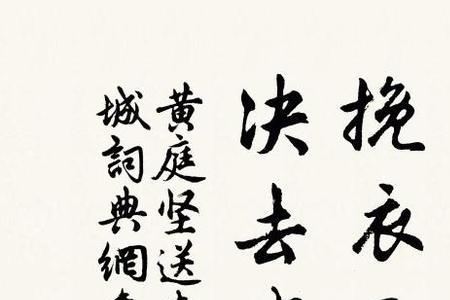 挽衣
决去
黄庭坚送
城詞典網